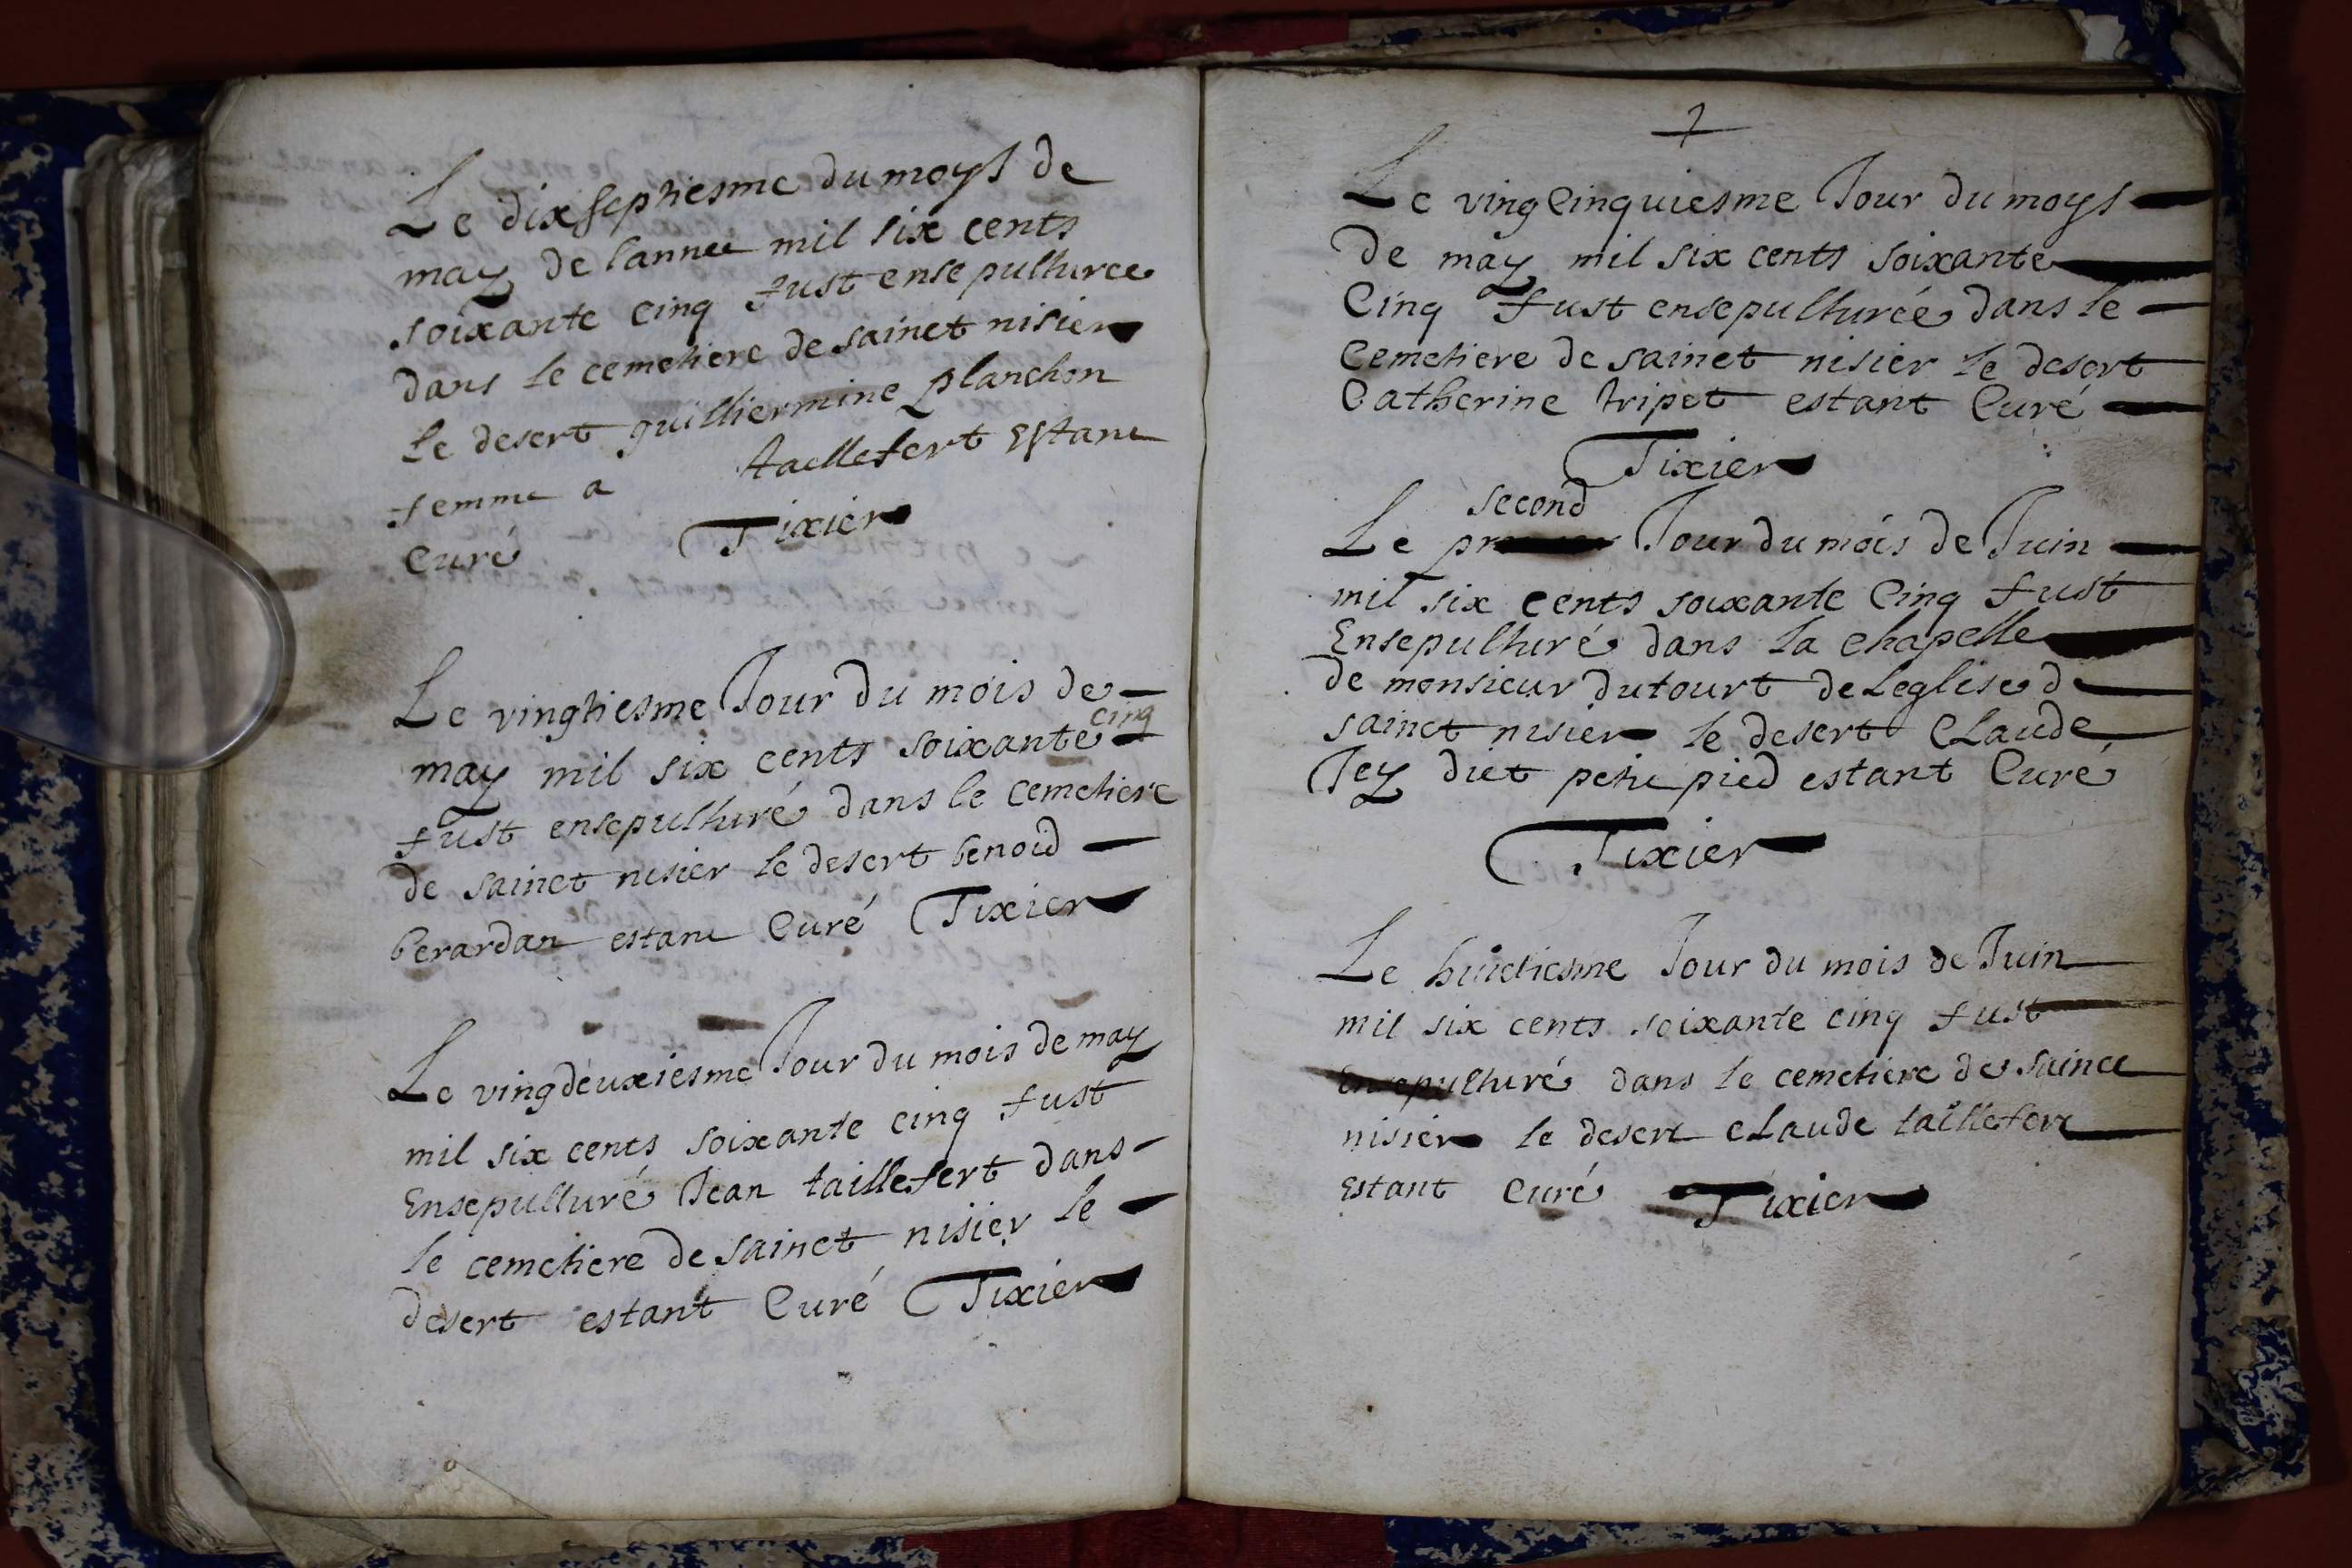 Le dixseptiesme du moys de
may de lannee mil six cents
soixante cinq fust ensepulturee
dans le cemetiere de sainct nisier
le desert guilliermine planchon
femme a taillefert estant
Curé Tixier
Le vingtiesme Jour du mois de
may mil six cents soixante cinq
fust ensepulturé dans le cemetiere
de sainct nisier le desert benoid
berardan estant Curé Tixier
Le vingdeuxiesme Jour du mois de may
mil six cents soixante cinq fust
Ensepulturé Jean taillefert dans
le cemetiere de sainct nisier le
desert estant Curé Tixier
Le vingcinquiesme Jour du moys
De may mil six cents soixante
Cinq fust ensepulturée dans le
Cemetiere de sainct nisier le desert
Catherine tripet estant Curé
Tixier
second
Le Jour du mois de Juin
mil six cents soixante Cinq fust
Ensepulturé dans la chapelle
de monsieur dutourt de Leglise de
sainct nisier le desert Claude
Jey dict petit pied estant Curé
Tixier
Le huictiesme Jour du mois de Juin
mil six cents soixante cinq fust
Ensepulturé dans le cemetiere de sainct
nisier le desert Claude taillefert
estant Curé Tixier